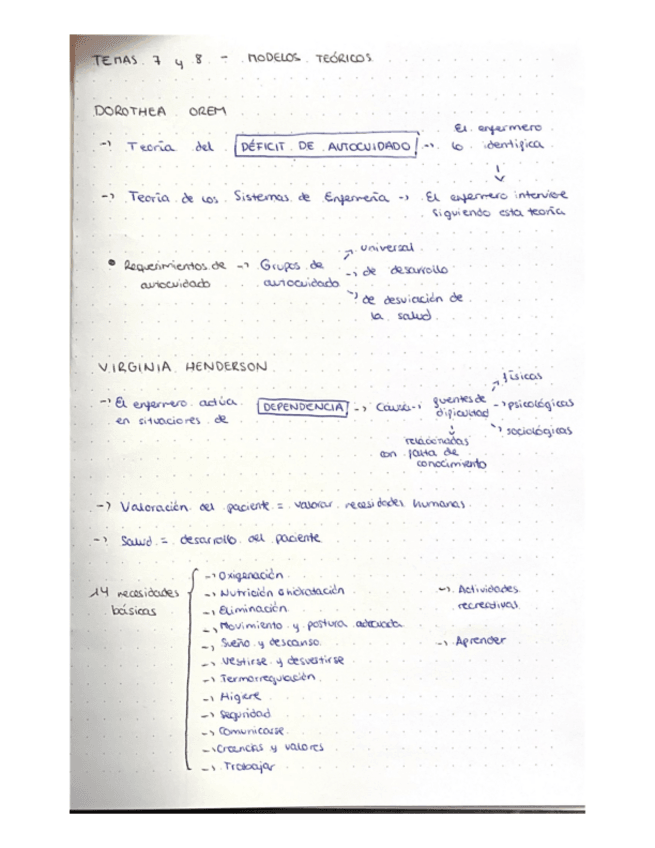 TEMAS 7 y 8 - MODELOS TEÓRICOS
DOROTHEA OREM
-> Teoría del DÉFICIT DE AUTOCUIDADO -> El enfermero
lo identifica
↓
-> Teoría de los Sistemas de Enfermería -> El enfermero interviene
siguiendo esta teoría
• Requerimientos de autocuidado -> Grupos de autocuidado
-> universal
-> de desarrollo
-> de desviación de
la salud
VIRGINIA HENDERSON
-> El enfermero actúa
en situaciones de DEPENDENCIA -> Causa -> fuentes de
dificultad
-> físicas
-> psicológicas
-> sociológicas
↓
relacionadas
con falta de
conocimiento
-> Valoración del paciente = valorar necesidades humanas
-> Salud = desarrollo del paciente
14 necesidades
básicas
-> Oxigenación
-> Nutrición e hidratación
-> Eliminación
-> Movimiento y postura adecuada
-> Sueño y descanso
-> Vestirse y desvestirse
-> Termorregulación
-> Higiene
-> Seguridad
-> Comunicarse
-> Creencias y valores
-> Trabajar
-> Actividades
recreativas
-> Aprender